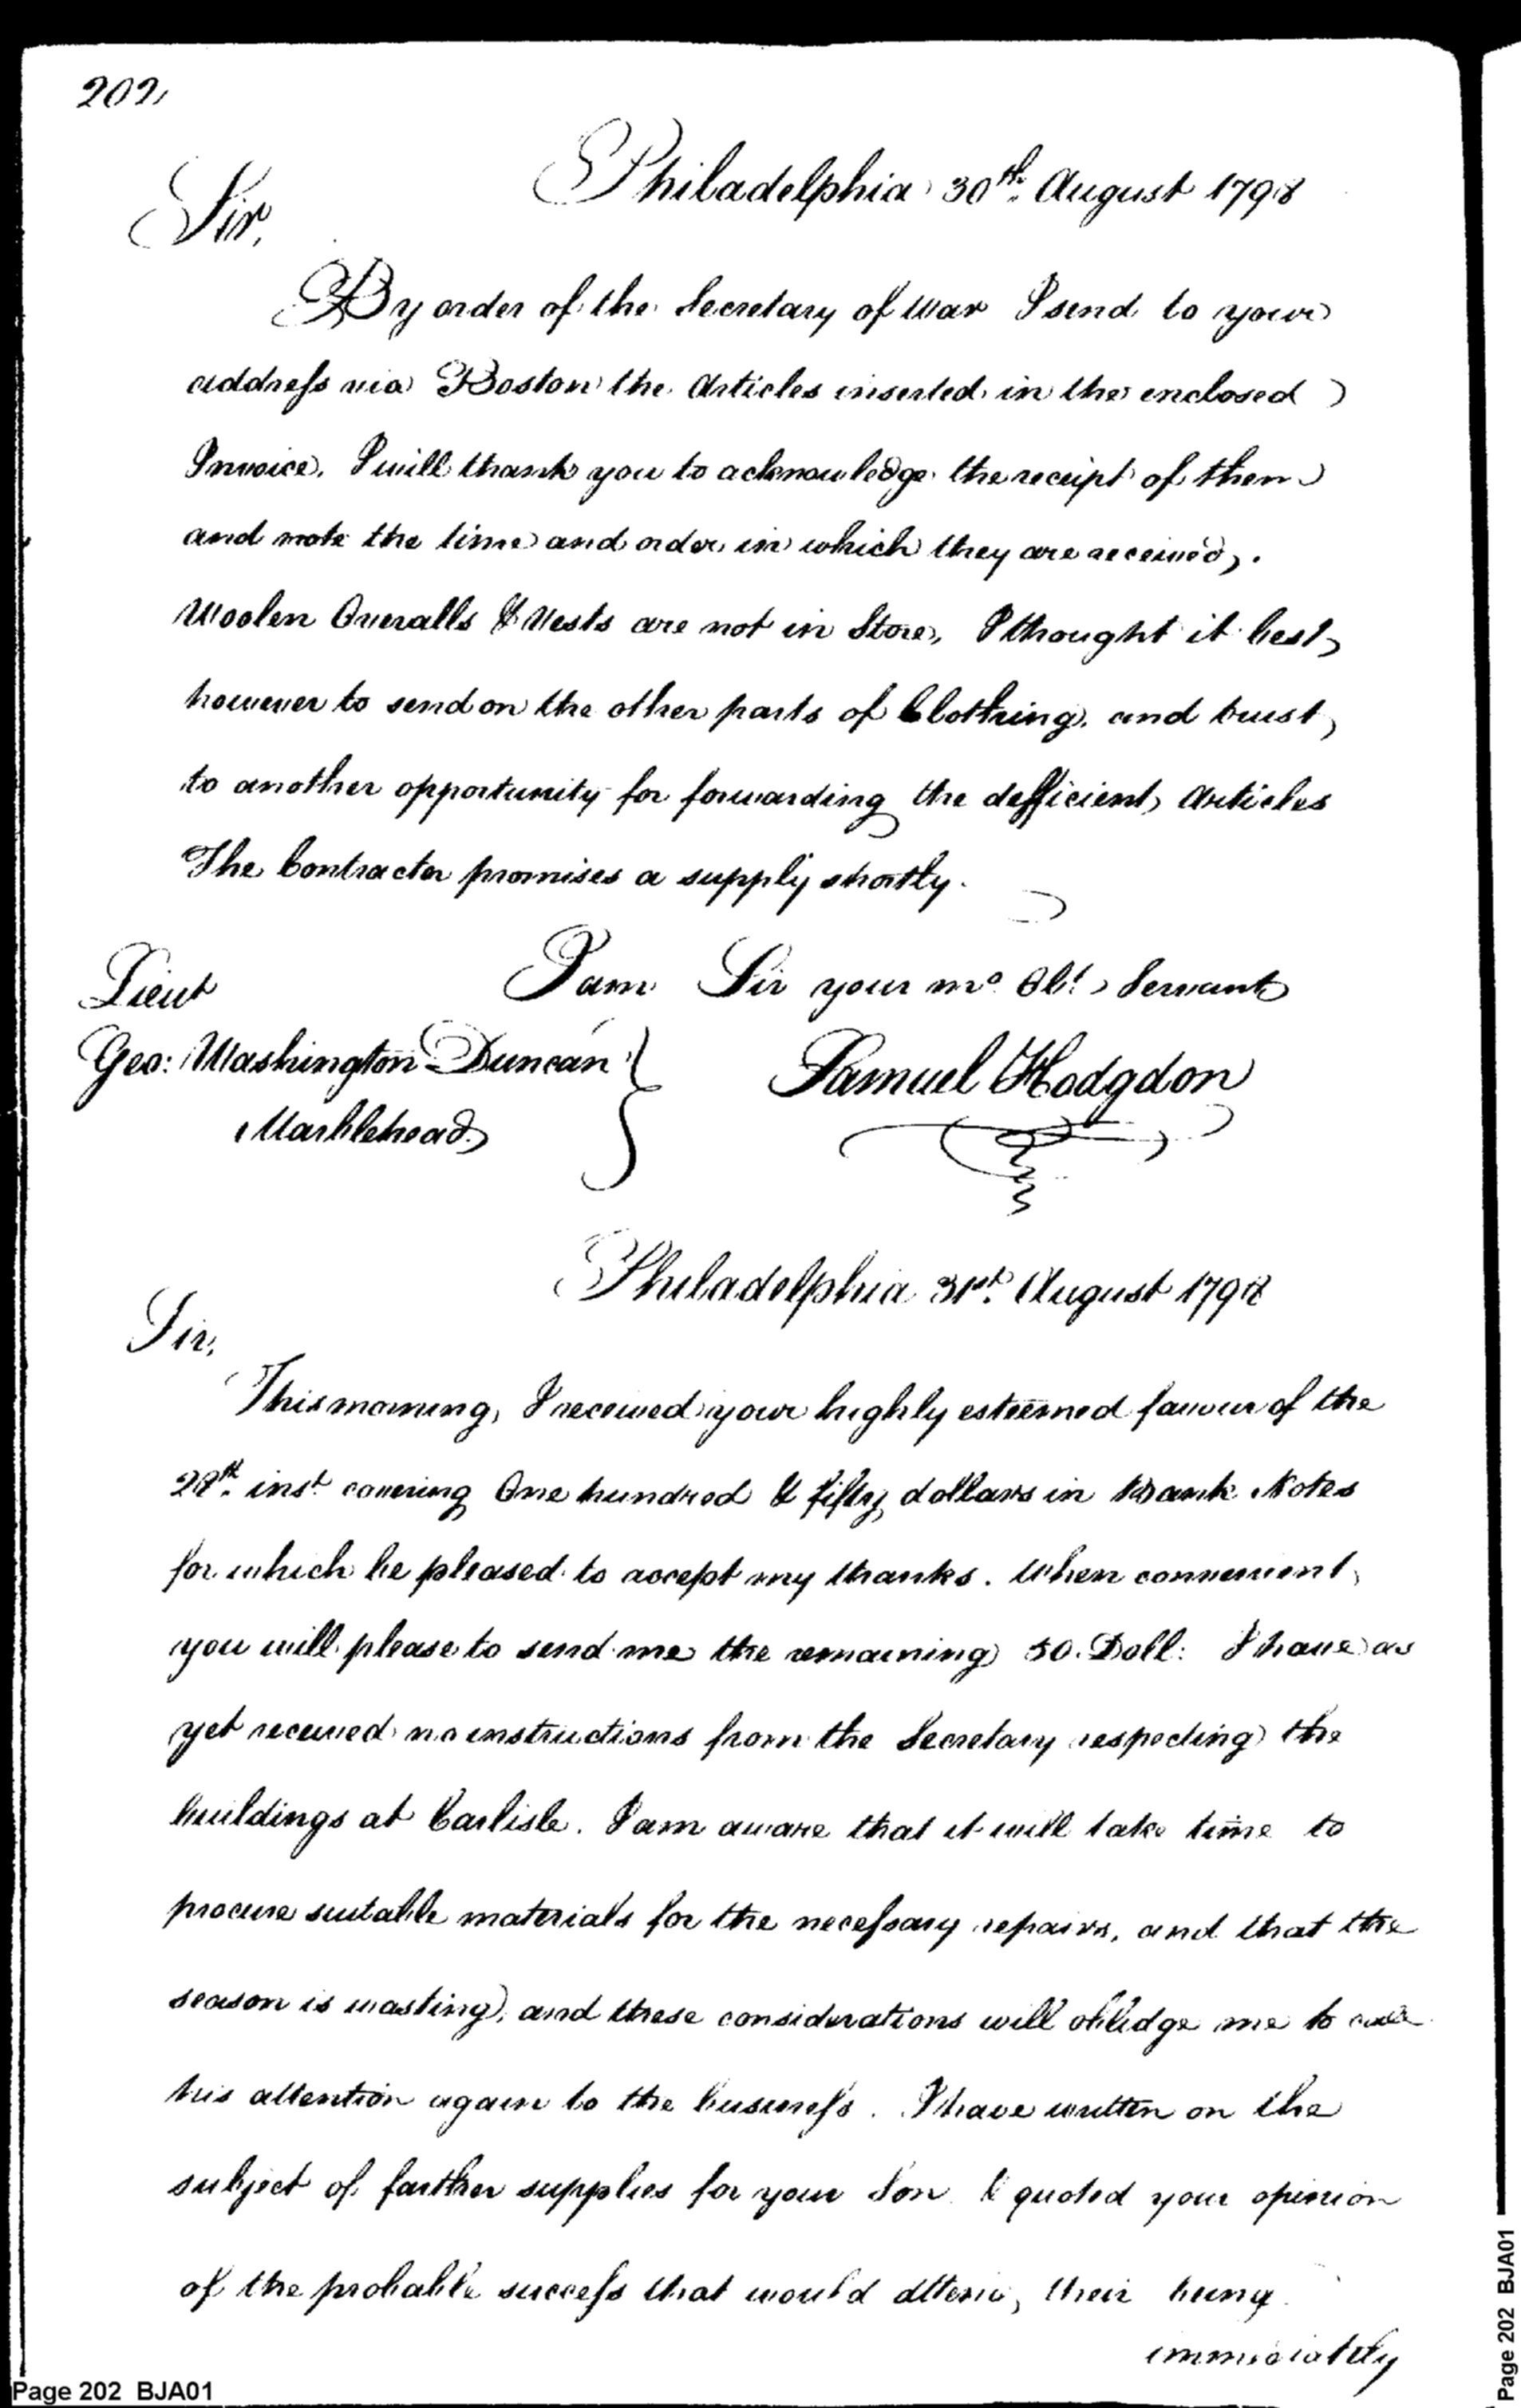 202
Philadelphia 30th August 1798
Sir,
By order of the Secretary of War I send to your
address via Boston the Articles inserted in the enclosed
Invoice. I will thank you to acknowledge the receipt of them
and note the time and order in which they are received,.
Woolen Overalls & Vests are not in Store, I thought it best,
however to send on the other parts of Clothing, and trust,
to another opportunity for forwarding the defficient, Articles
The Contractor promises a supply shortly.
I am Sir your mo. Obt. Servant
Lieut
Geo: Washington Duncan
Marblehead
Samuel Hodgdon
Philadelphia 31st. August 1798
Sir,
This morning, I received your highly esteemed favour of the
28th. inst. covering One hundred & fifty dollars in Bank Notes
for which be pleased to accept my thanks. When convenient,
you will please to send me the remaining 50. Doll: I have as
yet received no instructions from the Secretary respecting the
buildings at Carlisle. I am aware that it will take time to
procure suitable materials for the necessary repairs, and that the
season is wasting, and these considerations will obledge me to call
his attention again to the business. I have written on the
subject of farther supplies for your Son & quoted your opinion
of the probable success that would attend, their being
immediately
Page 202 BJA01
Page 202 BJA01